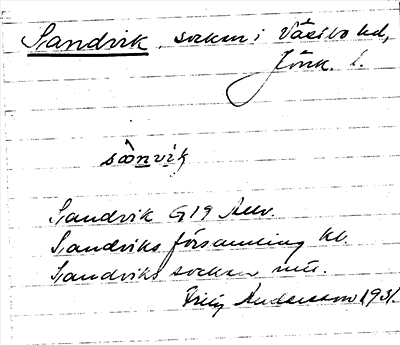 Sandvik socken i Västbo hd,
Jönk. l.
sànvik
Sandvik G19 Allv.
Sandviks församling kl.
Sandviks socken
Andersson 1931.